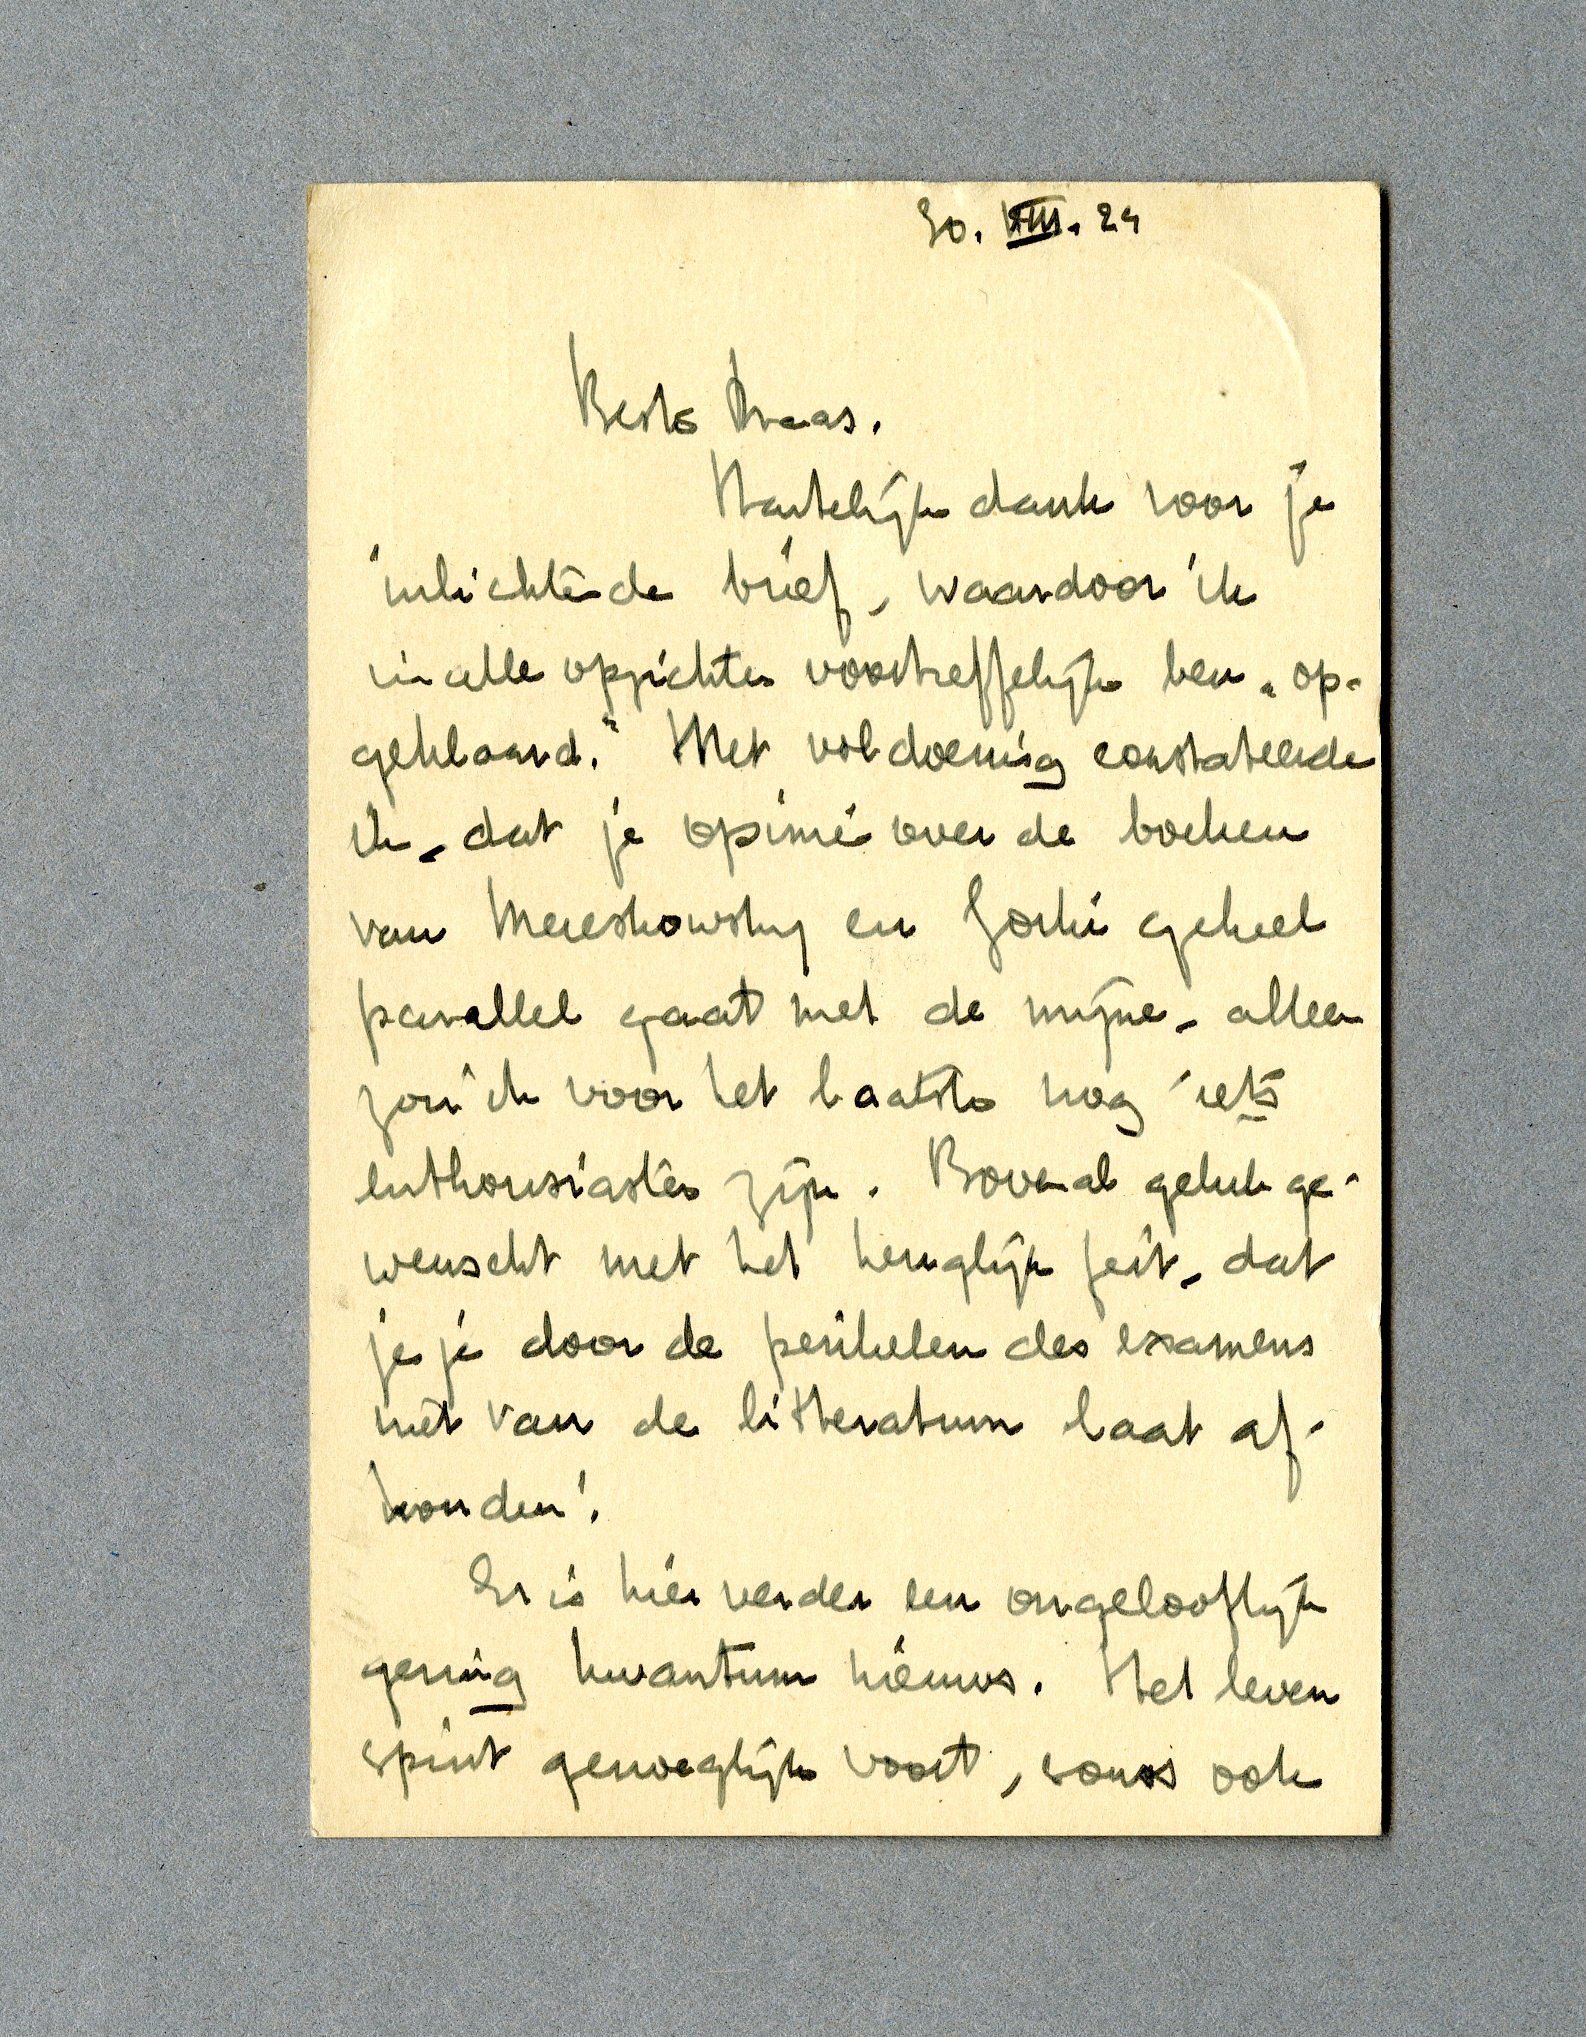 30. VIII. 24
Beste Draas.
Hartelijk dank voor je
inlichtende brief, waardoor ik
in alle opzichten voortreffelijk ben „op-
geklaard.” Met voldoening constateerde
ik, dat je opinie over de boeken
van Mereskowsky en Gorki geheel
parallel gaat met de mijne, alleen
zou ik voor het laatste nog iets
enthousiaster zijn. Bovenal geluk ge-
wenscht met het heuglijk feit, dat
je je door de perikelen des examens
niet van de litteratuur laat af-
houden!
Er is hier verder een ongelooflijk
gering kwantum nieuws. Het leven
spint genoeglijk voort, soms ook